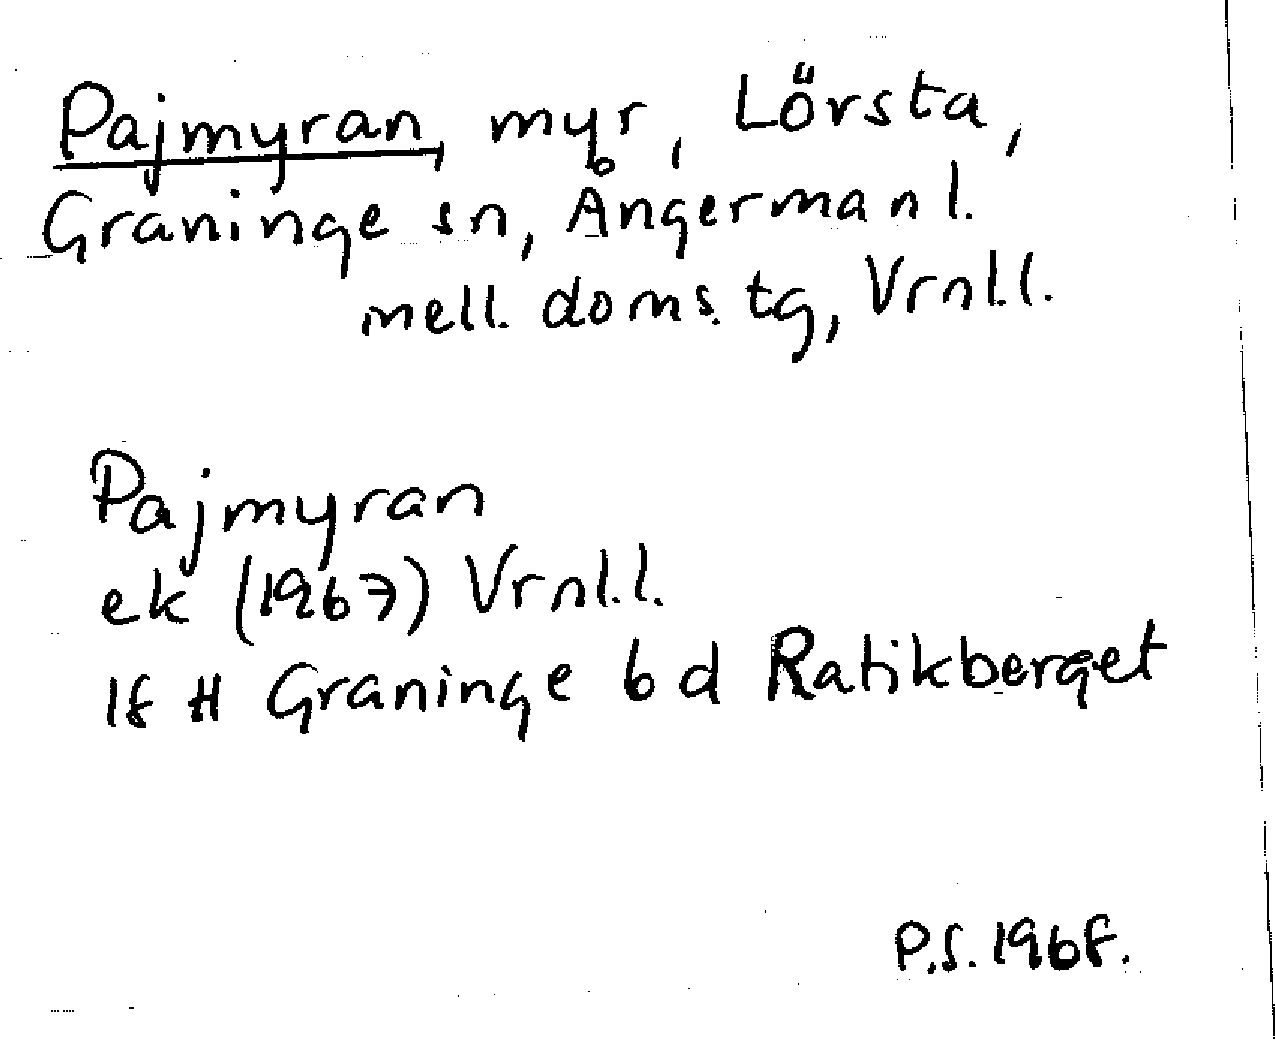 Pajmyran, myr, Lörsta,
Graninge sn, Ångermanl.
mell. doms. tg, Vrnl.l.
Pajmyran
ek (1967) Vrnl.l.
18 H Graninge b d Ratikberget
P.S. 1968.